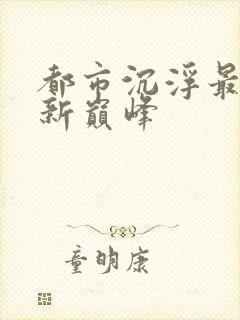 都市沉浮最
新巅峰
童明康